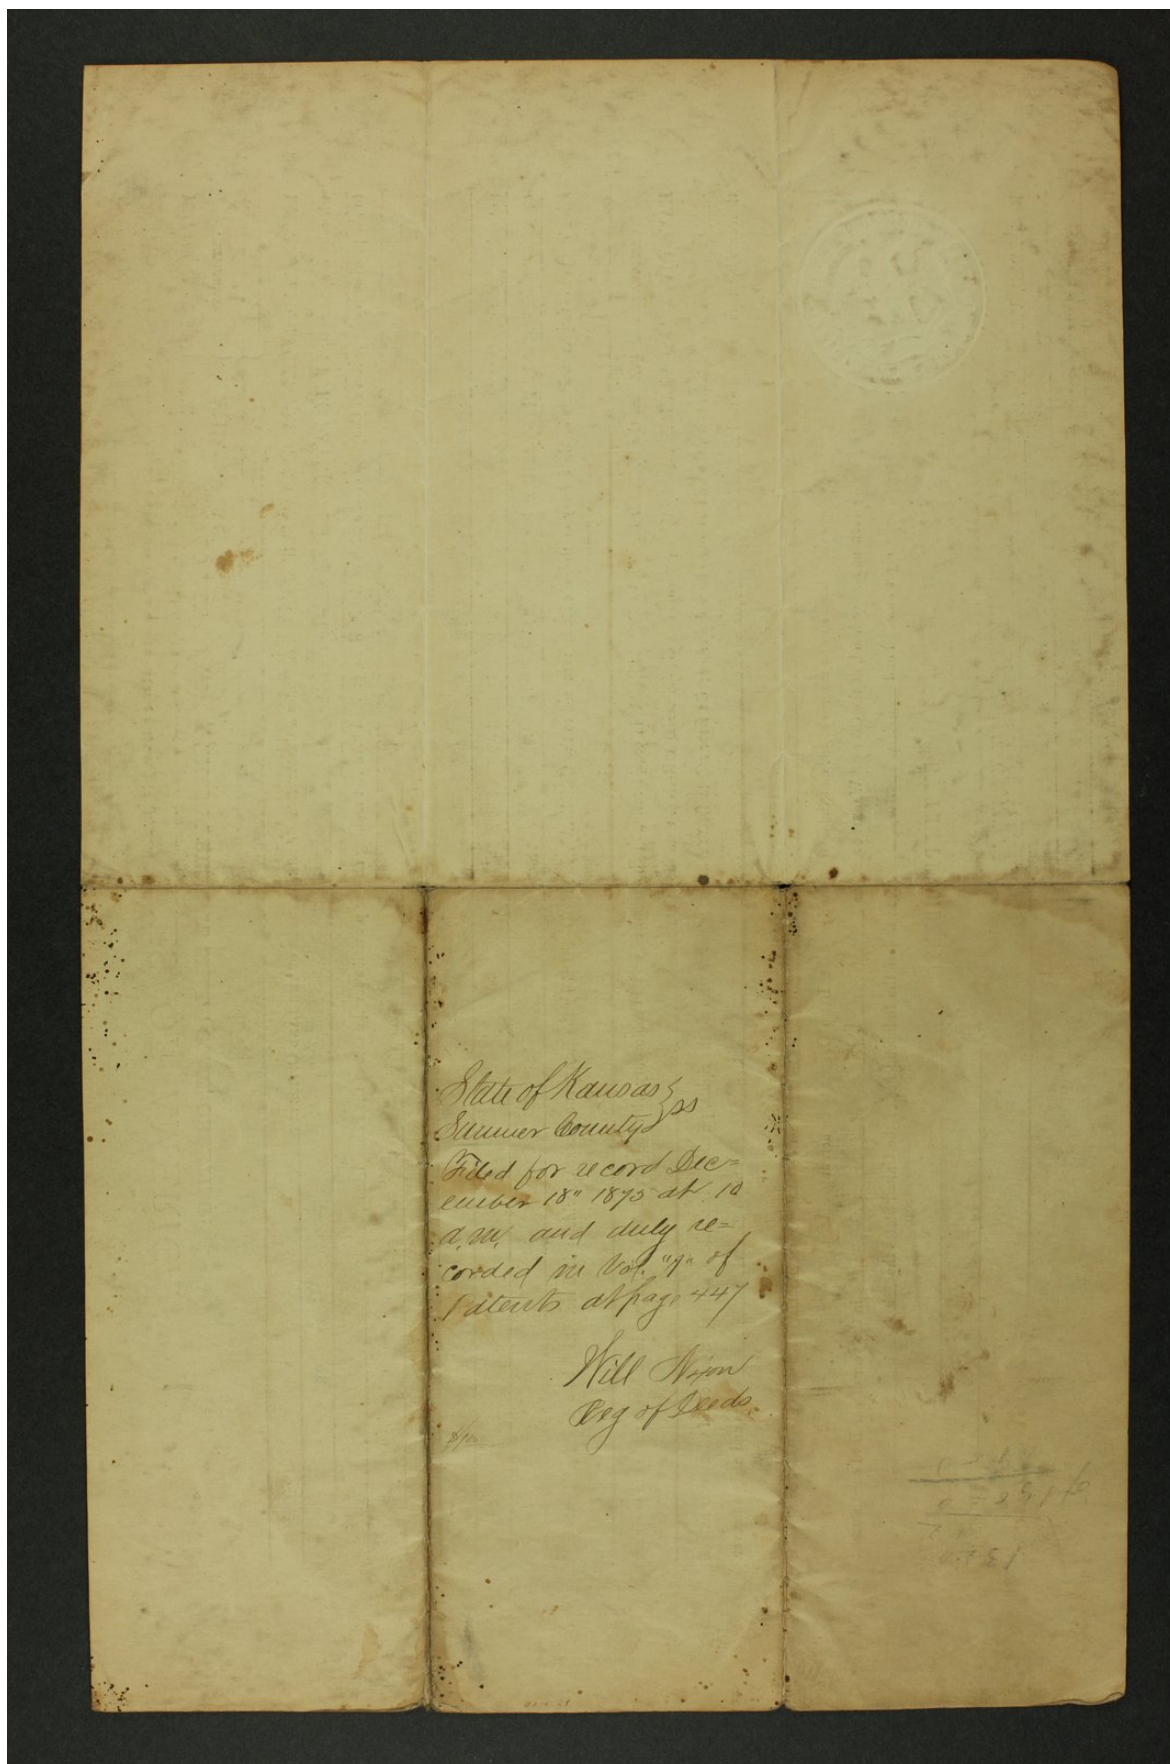 State of Kansas } ss
Sumner County }
Filed for record Dec=
ember 18" 1875 at 10
a.m. and duly re=
corded in Vol. "1" of
Patents at page 447
Will Nixon
Reg of Deeds.